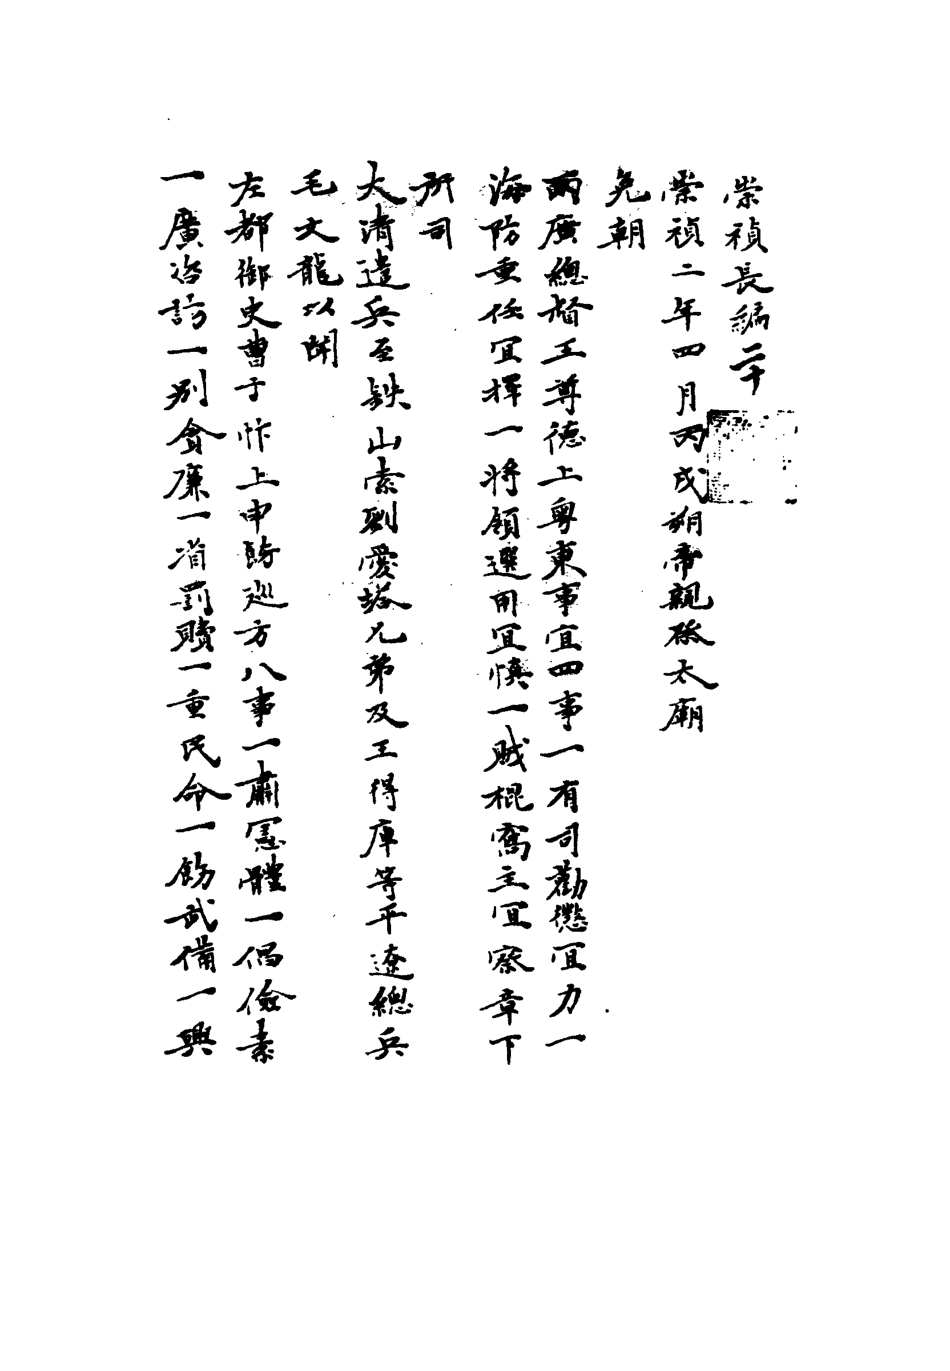 崇禎長編二十
崇禎二年四月丙戌朔帝親祭太廟
免朝
兩廣總督王尊德上粤東事宜四事一有司勸懲宜力一
海防重任宜擇一將領選用宜慎一賊棍窩主宜察章下
所司
大清遣兵至鉄山索劉愛塔兄弟及王得庫等平遼總兵
毛文龍以聞
左都御史曹于忭上申飭巡方八事一肅憲體一倡儉素
一廣咨訪一别貪廉一省罰贖一重民命一飭武備一興